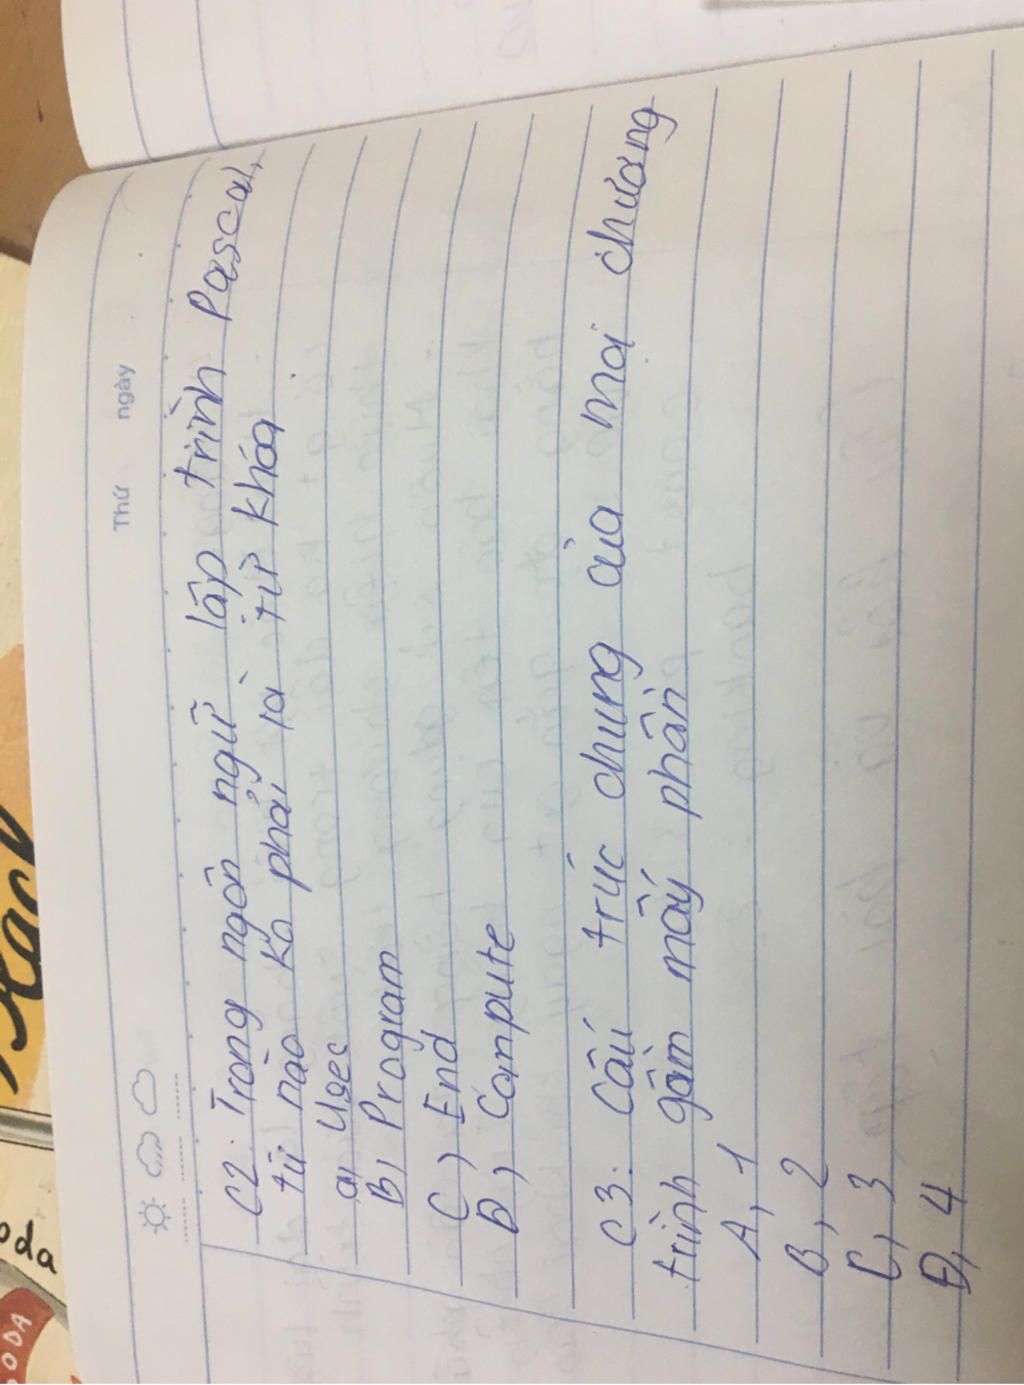 Thứ ngày
C2: Trong ngôn ngữ lập trình Pascal,
từ nào ko phải là từ khóa
a, Uses
B, Program
C) End
D, Compute
C3: Cấu trúc chung của mọi chương
trình gồm mấy phần
A, 1
B, 2
C, 3
Đ, 4
oda
ODA